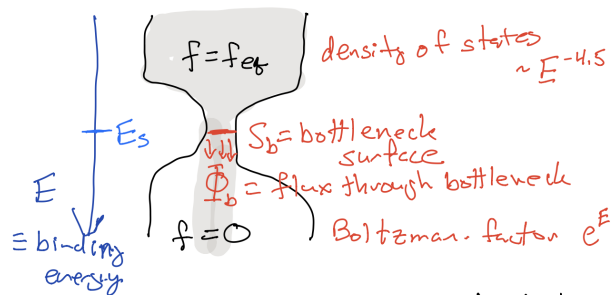 f = f_eq
density of states
~ E^-4.5
E_s
S_b = bottleneck
surface
Φ_b = flux through bottleneck
E
≡ binding
energy
f = 0
Boltzman. factor e^E